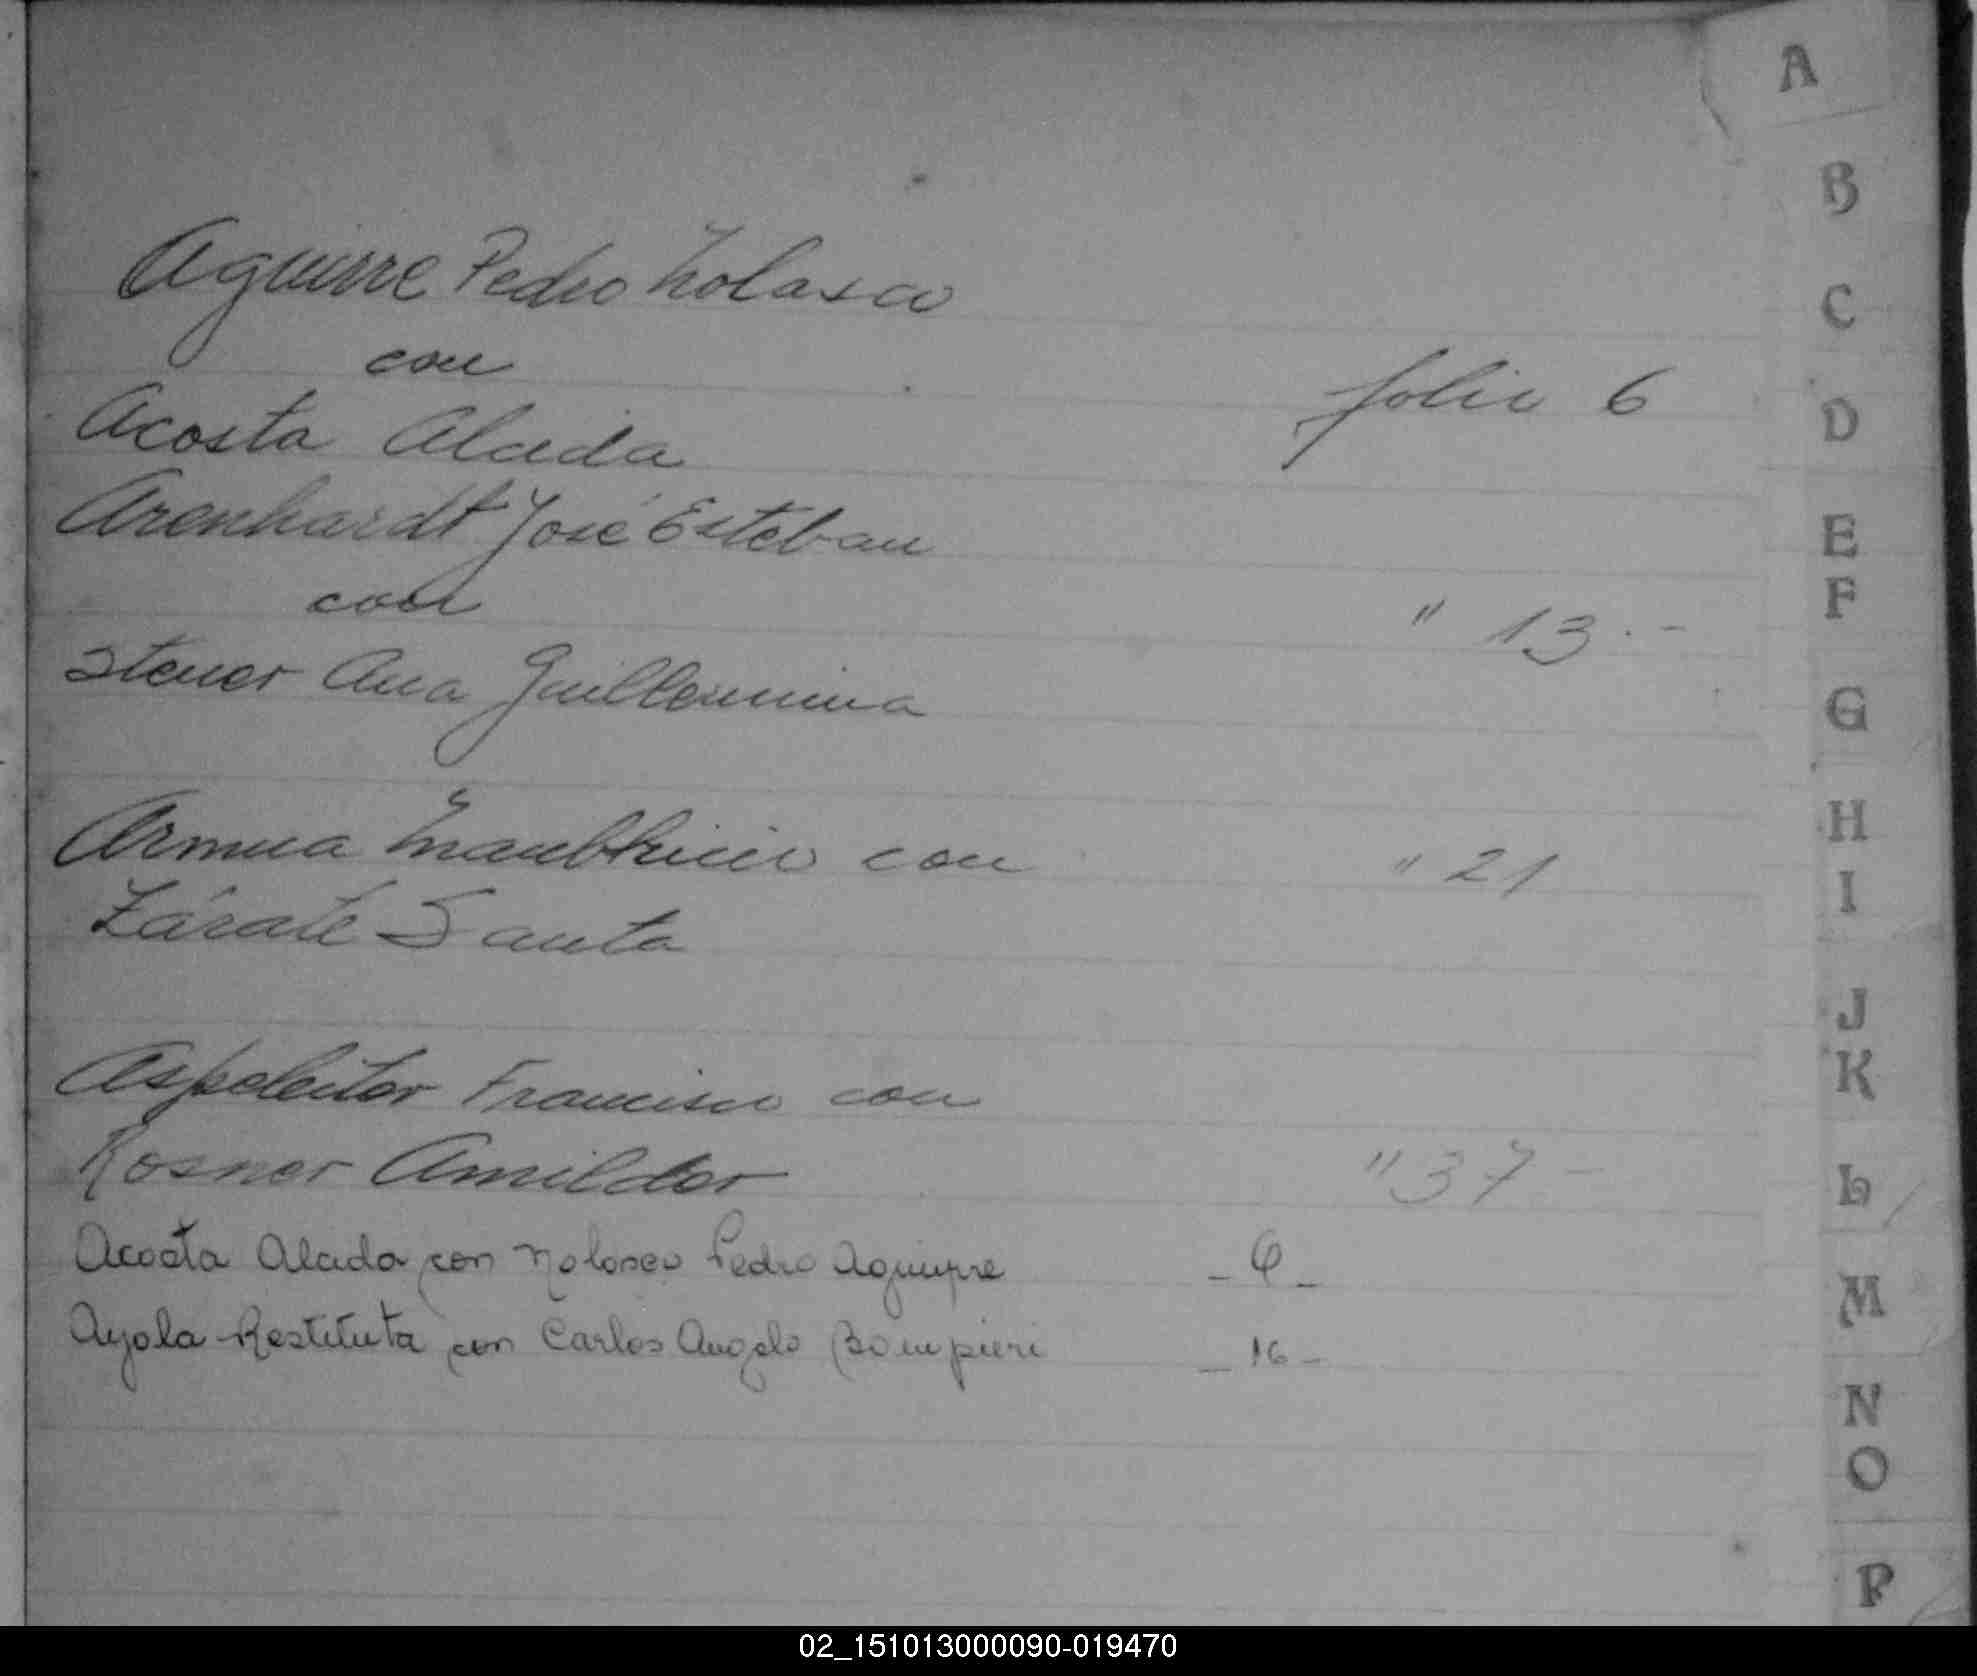 A
B
C
D
E
F
G
H
I
J
K
L
M
N
O
P
Aguirre Pedro Nolasco
con
Acosta Alcida folio 6
Arenhardt José Esteban
con " 13.-
Stener Ana Guillermina
Armua con " 21
Zárate Santa
Aspeleiter Francisco con
Rosner Amilder " 37 -
Acosta Alcida con Nolasco Pedro Aguirre - 6 -
Ayala Restituta con Carlos Angelo Bompieri - 16 -
02_151013000090-019470